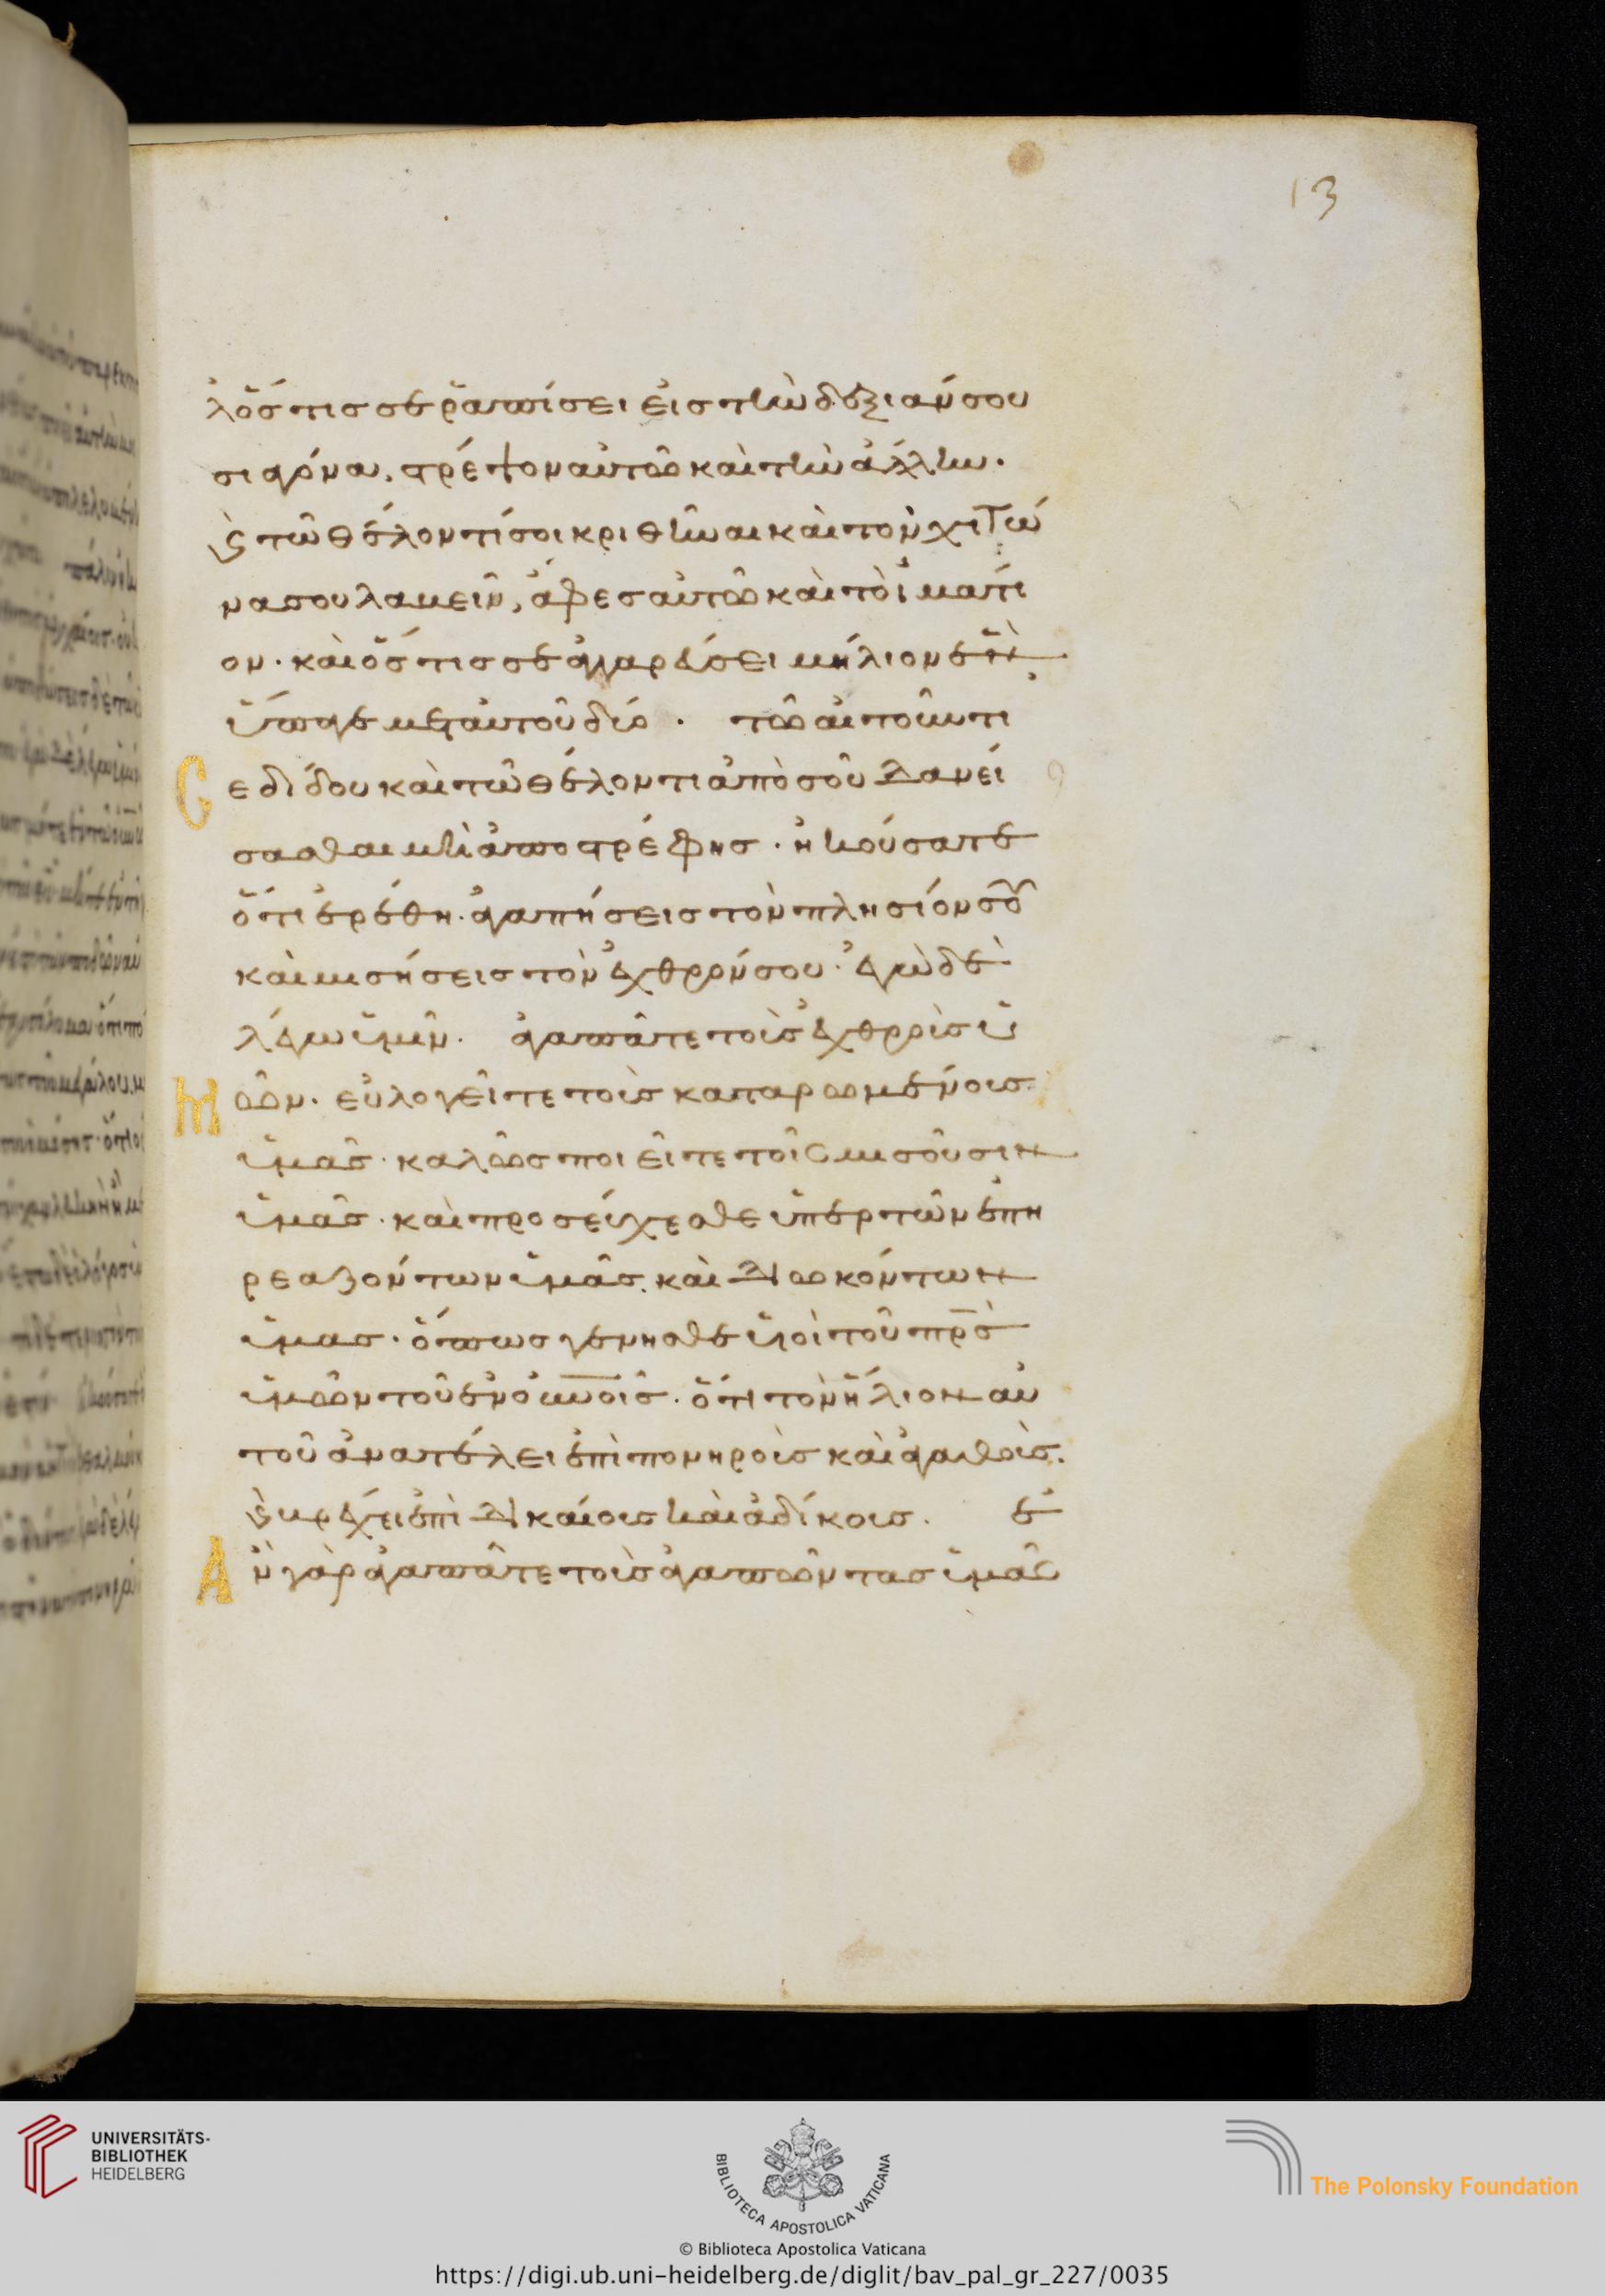 13
λ ὅστις σε ῥαπίσει εἰς τὴν δεξιάν σου
σιαγόνα, στρέψον αὐτῶ καὶ τὴν ἄλλην.
ϗ τῶ θέλοντί σοι κριθῆναι καὶ τὸν χιτῶ
να σου λαβεῖν, ἄφες αὐτῶ καὶ τὸ ἱμάτι
ον. καὶ ὅστις σε ἀγγαρεύσει μήλιον ἓν
ὕπαγε μετ αὐτοῦ δύο. τῶ αἰτοῦντι
Cε δίδου καὶ τῶ θέλοντι ἀπὸ σοῦ δανεί
σασθαι μὴ ἀποστρέφης. ἠκούσατε
ὅτι ἐρέθη. ἀγαπήσεις τὸν πλησίον σου
καὶ μισήσεις τὸν ἐχθρόν σου. ἐγὼ δὲ
λέγω ὑμῖν. ἀγαπᾶτε τοὺς ἐχθροὺς ὑ
Μῶν. εὐλογεῖτε τοὺς καταρωμένους
ὑμᾶς. καλῶς ποιεῖτε τοῖς μισοῦσιν
ὑμᾶς. καὶ προσεύχεσθε ὑπὲρ τῶν ἐπη
ρεαζόντων ὑμᾶς, καὶ διωκόντων
ὑμας. ὅπως γένησθε ὑιοὶ τοῦ πρσ
ὑμῶν τοῦ ἐν οὐνοις. ὅτι τὸν ἥλιον αὐ
τοῦ ἀνατέλει ἐπὶ πονηροὺς καὶ ἀγαθοὺς.
ϗ βρέχει ἐπὶ δικαίους καὶ ἀδίκους. ἐ
Ὰν γὰρ ἀγαπᾶτε τοὺς ἀγαπῶντας ὑμᾶς
UNIVERSITÄTS-
BIBLIOTHEK
HEIDELBERG
BIBLIOTECA APOSTOLICA VATICANA
The Polonsky Foundation
© Biblioteca Apostolica Vaticana
https://digi.ub.uni-heidelberg.de/diglit/bav_pal_gr_227/0035